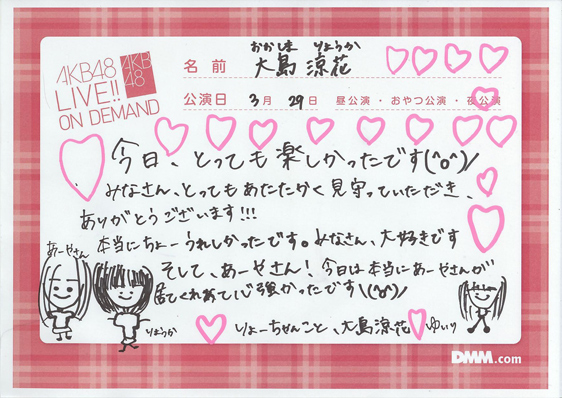 AKB48
LIVE!!
ON DEMAND
AKB
48
おおしま りょうか
名前 大島 涼花
公演日 3月 29日 昼公演・おやつ公演・夜公演
今日、とっても楽しかったです(^o^)/
みなさん、とってもあたたかく見守っていただき、
ありがとうございます!!!
本当にちょーうれしかったです。みなさん、大好きです
あーやさん
そして、あーやさん!今日は本当にあーやさんが
居てくれあて心強かったです\(^o^)/
りょうか
りょーちゃんこと、大島涼花
ゆいり
DMM.com